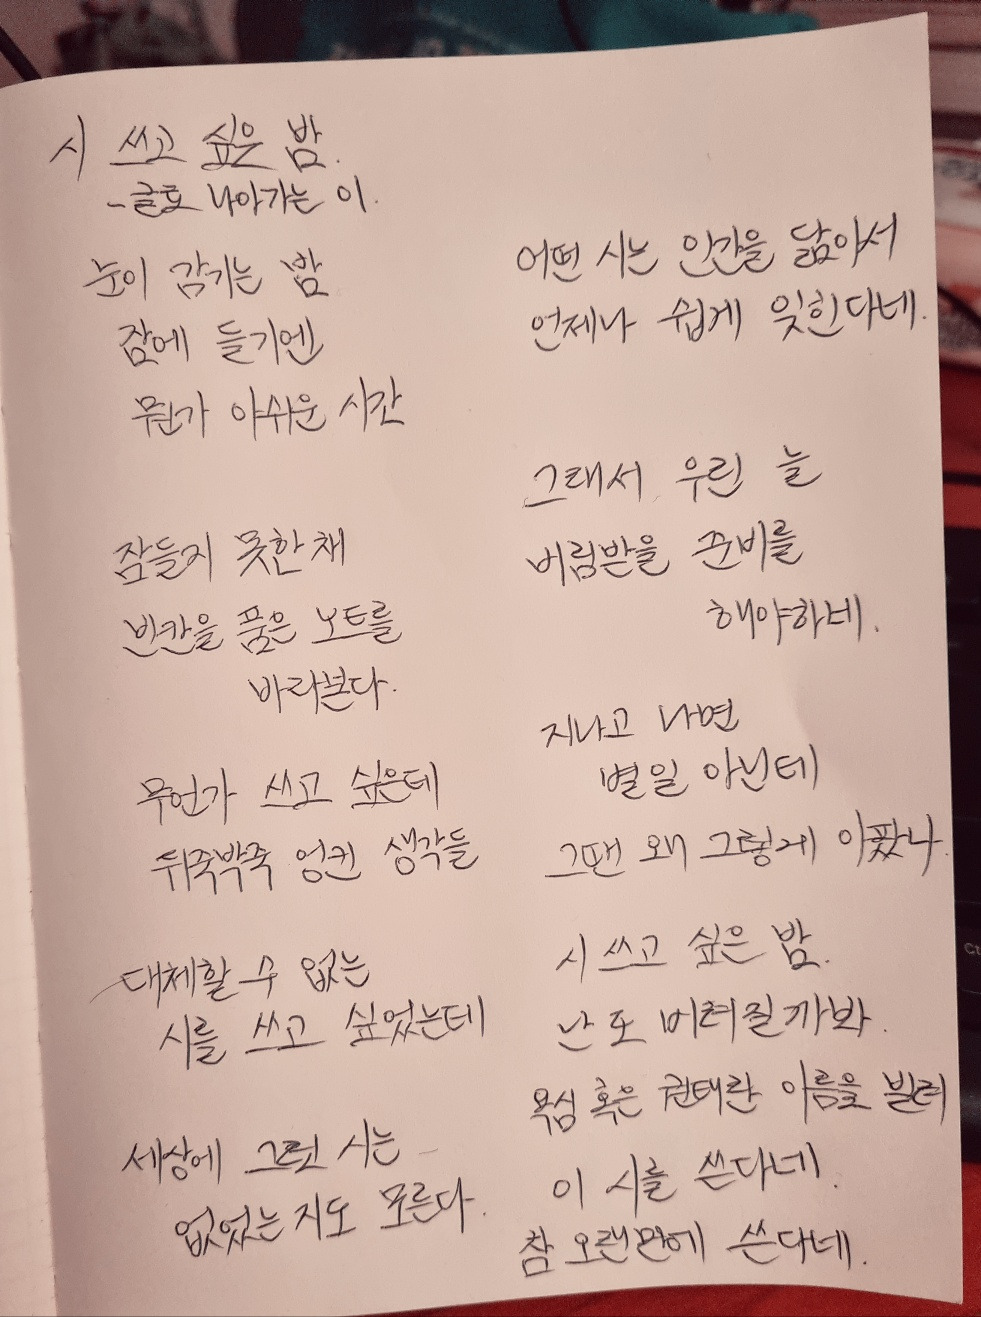 시 쓰고 싶은 밤.
-글로 나아가는 이.
눈이 감기는 밤
잠에 들기엔
뭔가 아쉬운 시간
잠들지 못한 채
빈칸을 품은 노트를
바라본다.
무언가 쓰고 싶은데
뒤죽박죽 엉킨 생각들
대체할 수 없는
시를 쓰고 싶었는데
세상에 그런 시는
없었는지도 모른다.
어떤 시는 인간을 닮아서
언제나 쉽게 잊힌다네.
그래서 우린 늘
버림받을 준비를
해야하네.
지나고 나면
별일 아닌데
그땐 왜 그렇게 아팠나.
시 쓰고 싶은 밤.
난 또 버려질까봐.
욕심 혹은 권태란 이름을 빌려
이 시를 쓴다네.
참 오랜만에 쓴다네.